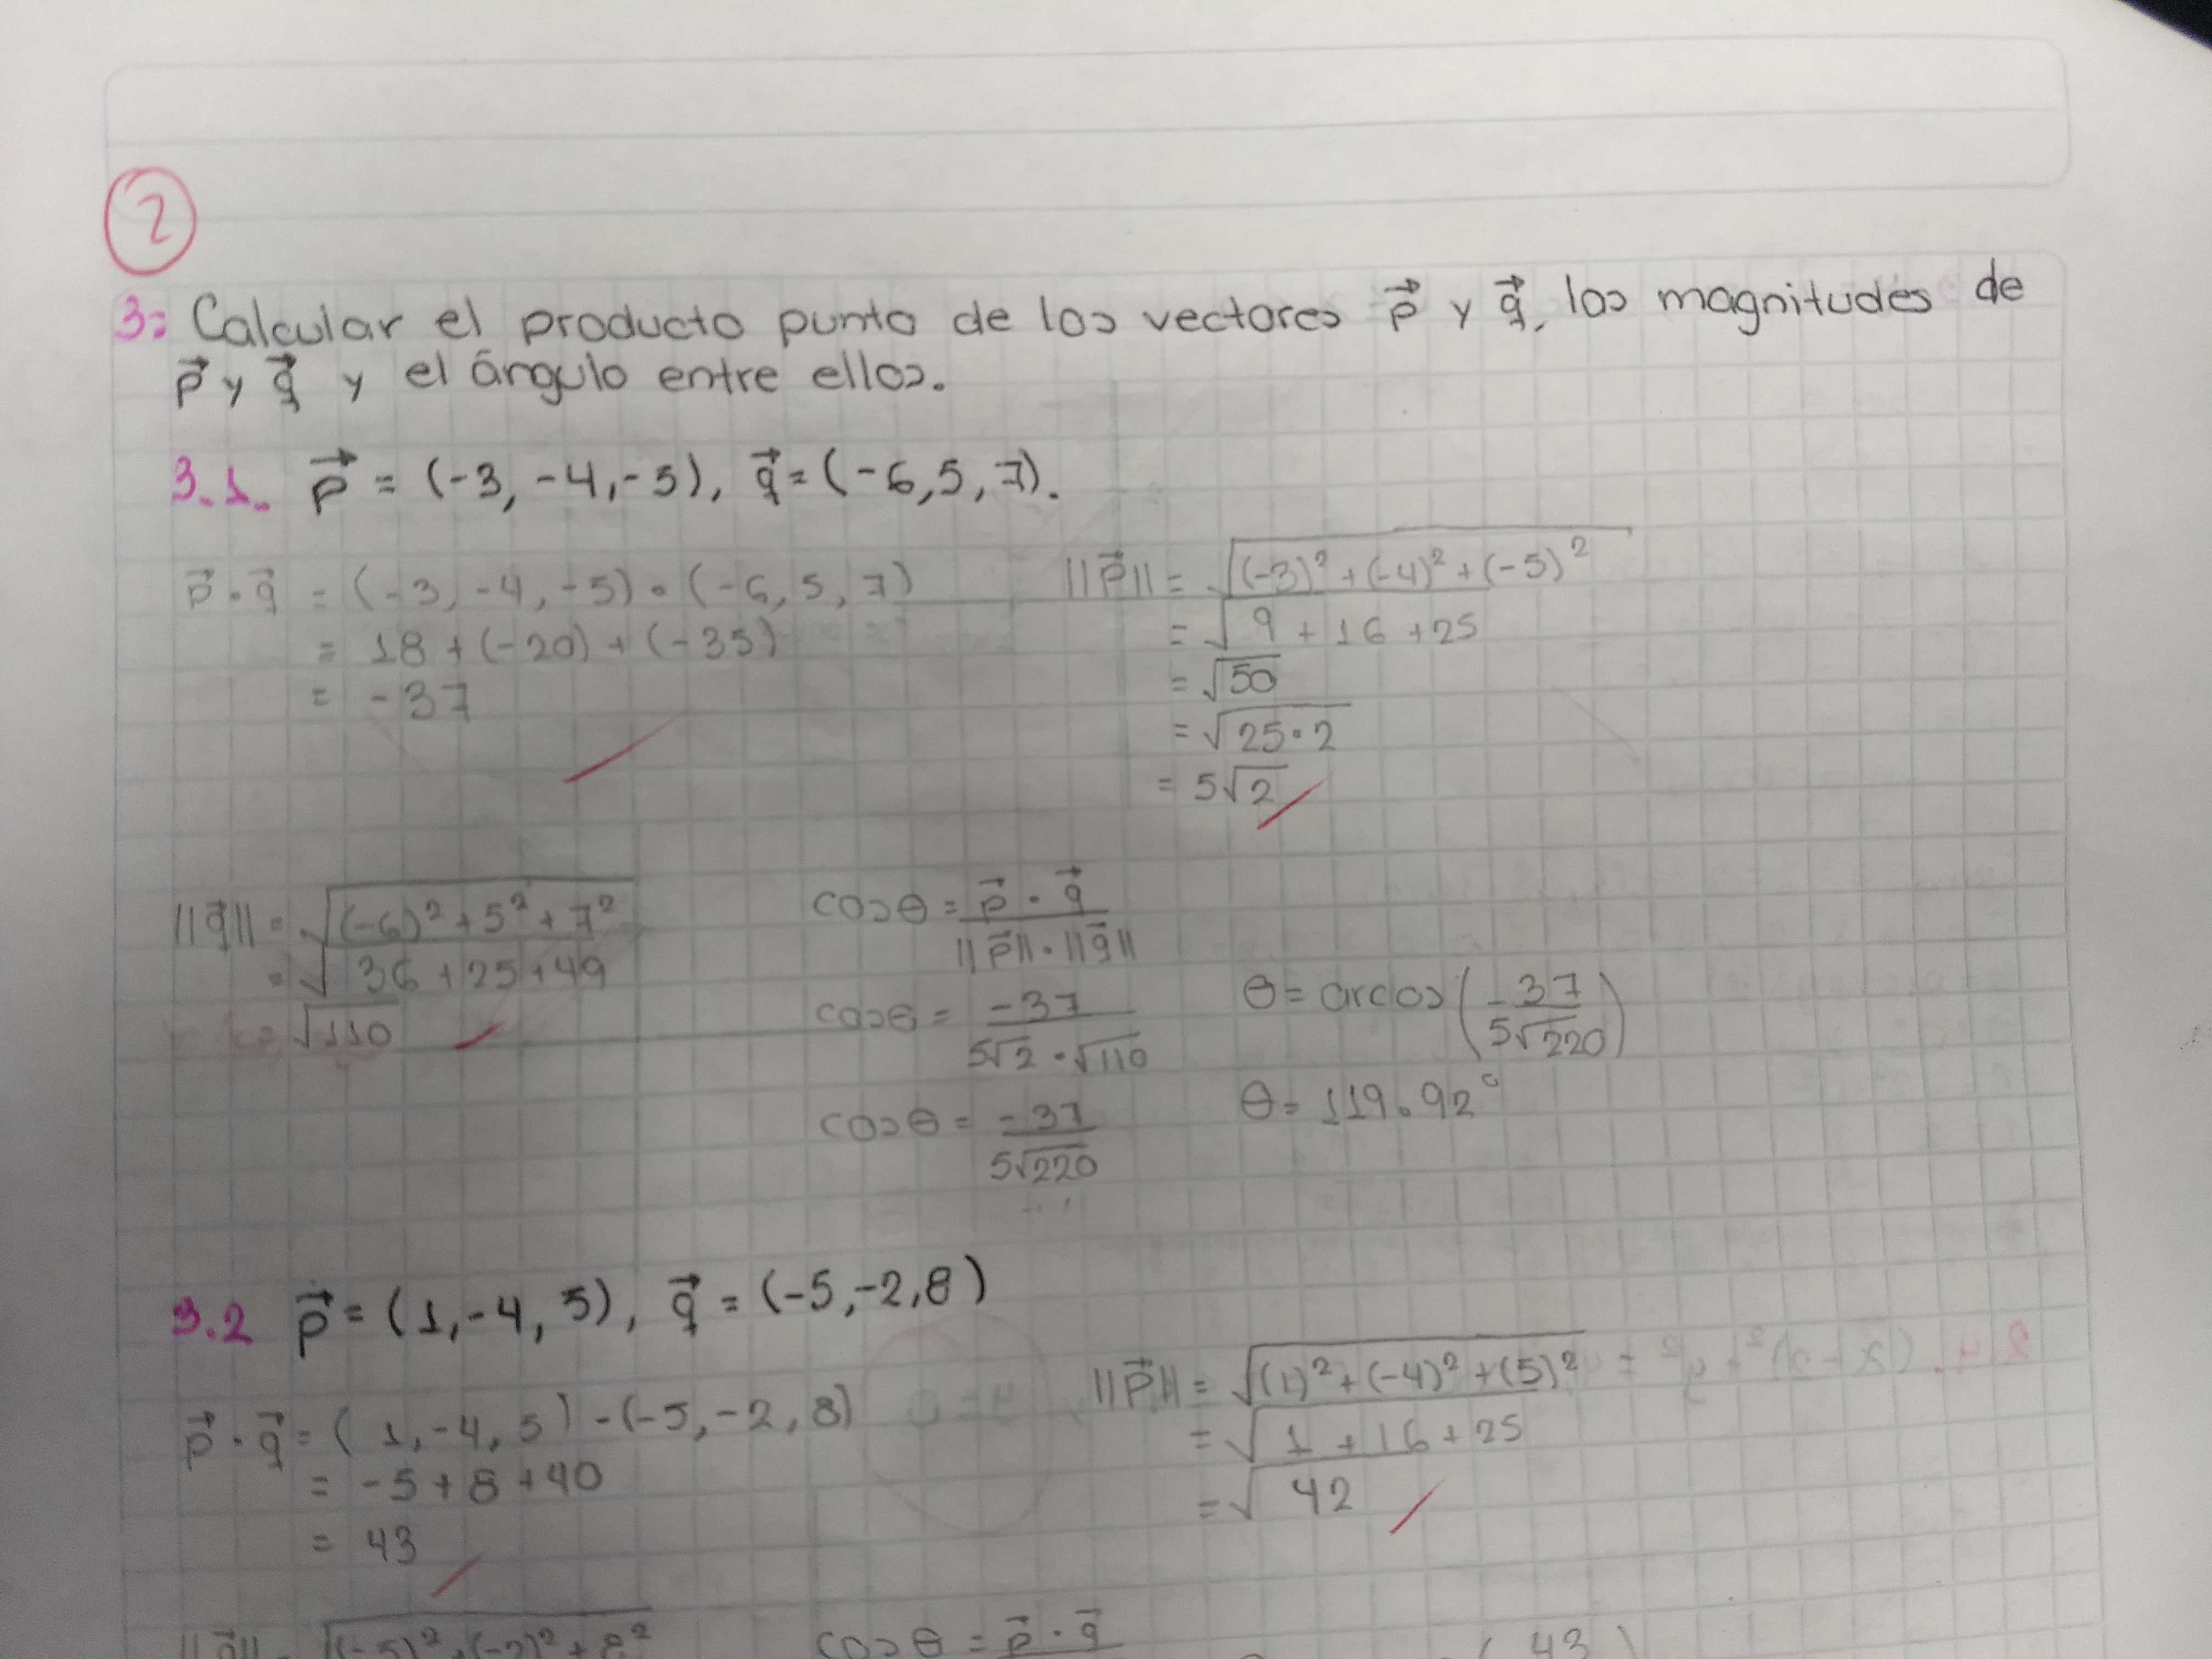 2
3: Calcular el producto punto de los vectores p⃗ y q⃗, las magnitudes de
p⃗ y q⃗ y el ángulo entre ellos.
3.1. p⃗ = (-3, -4, -5), q⃗ = (-6, 5, 7).
p⃗ · q⃗ = (-3, -4, -5) · (-6, 5, 7)
= 18 + (-20) + (-35)
= -37
||p⃗|| = √((-3)² + (-4)² + (-5)²)
= √(9 + 16 + 25)
= √50
= √(25·2)
= 5√2
||q⃗|| = √((-6)² + 5² + 7²)
= √(36 + 25 + 49)
= √110
cosθ = (p⃗ · q⃗) / (||p⃗|| · ||q⃗||)
cosθ = -37 / (5√2 · √110)
cosθ = -37 / (5√220)
θ = arcos(-37 / (5√220))
θ = 119.92°
3.2 p⃗ = (1, -4, 5), q⃗ = (-5, -2, 8)
p⃗ · q⃗ = (1, -4, 5) - (-5, -2, 8)
= -5 + 8 + 40
= 43
||p⃗|| = √((1)² + (-4)² + (5)²)
= √(1 + 16 + 25)
= √42
||q⃗|| = √((-5)² + (-2)² + 8²)
cosθ = p⃗ · q⃗
( 43 )